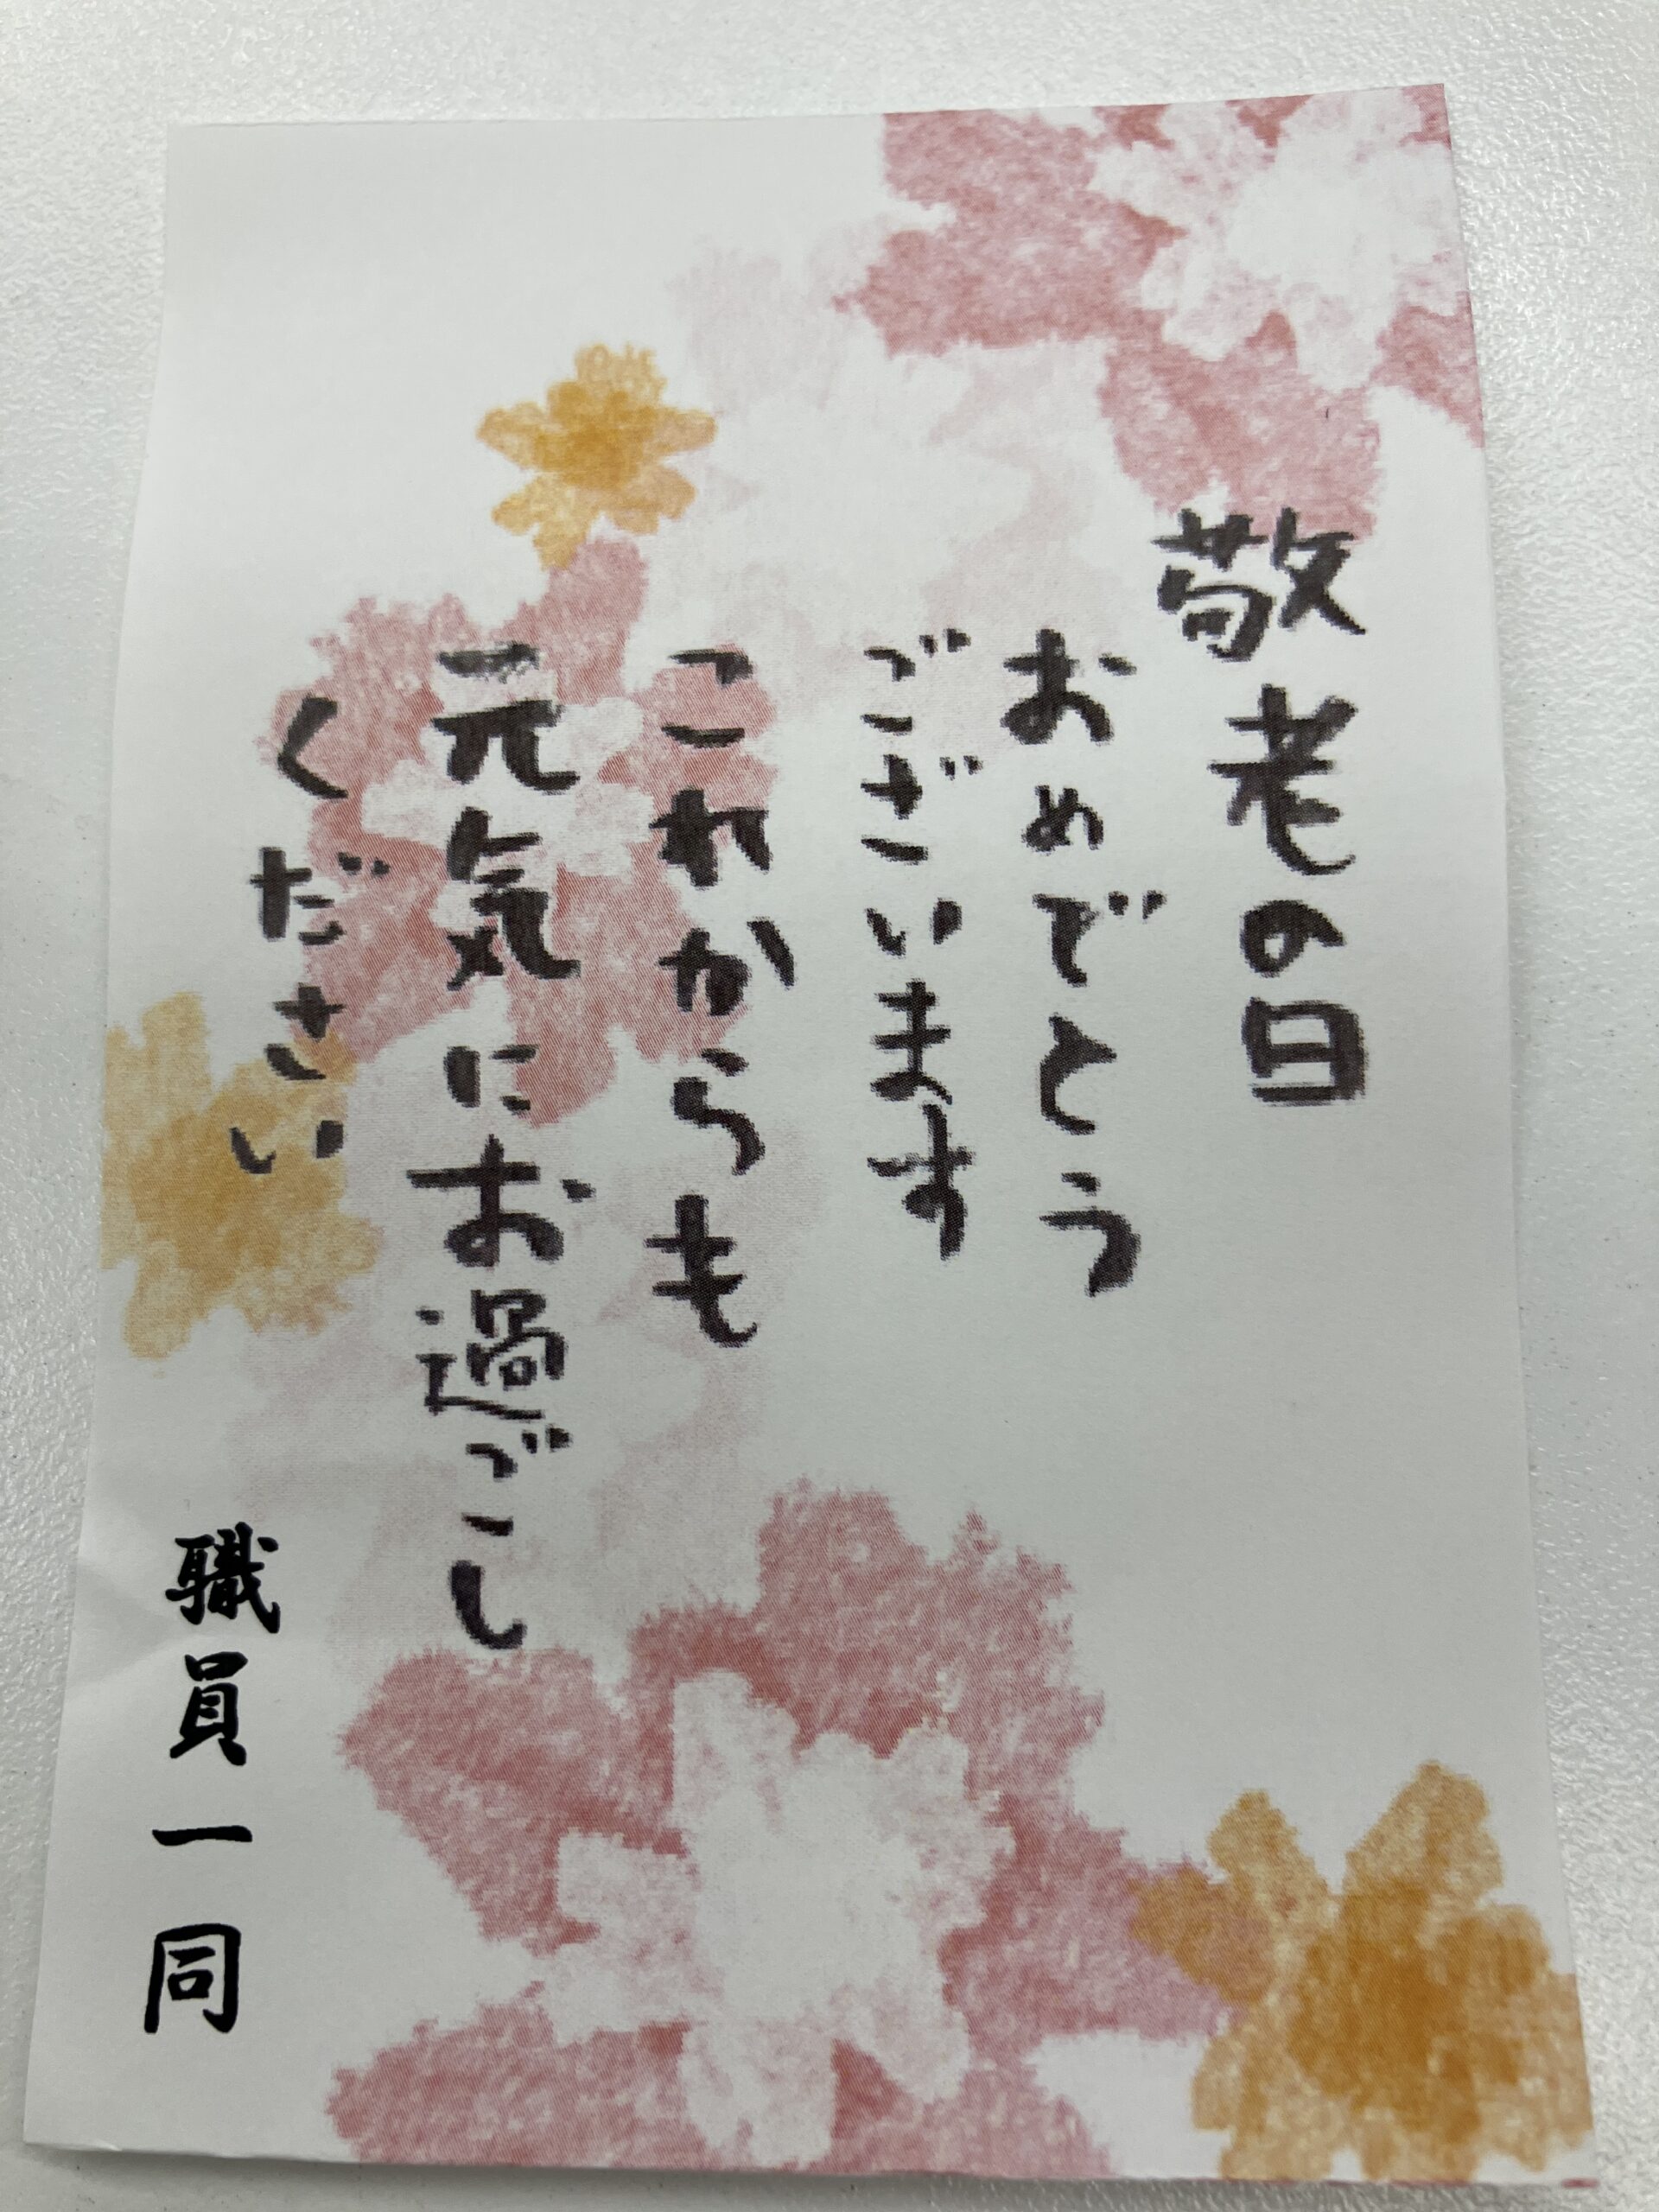 敬老の日
おめでとう
ございます
これからも
元気にお過ごし
ください
職員一同